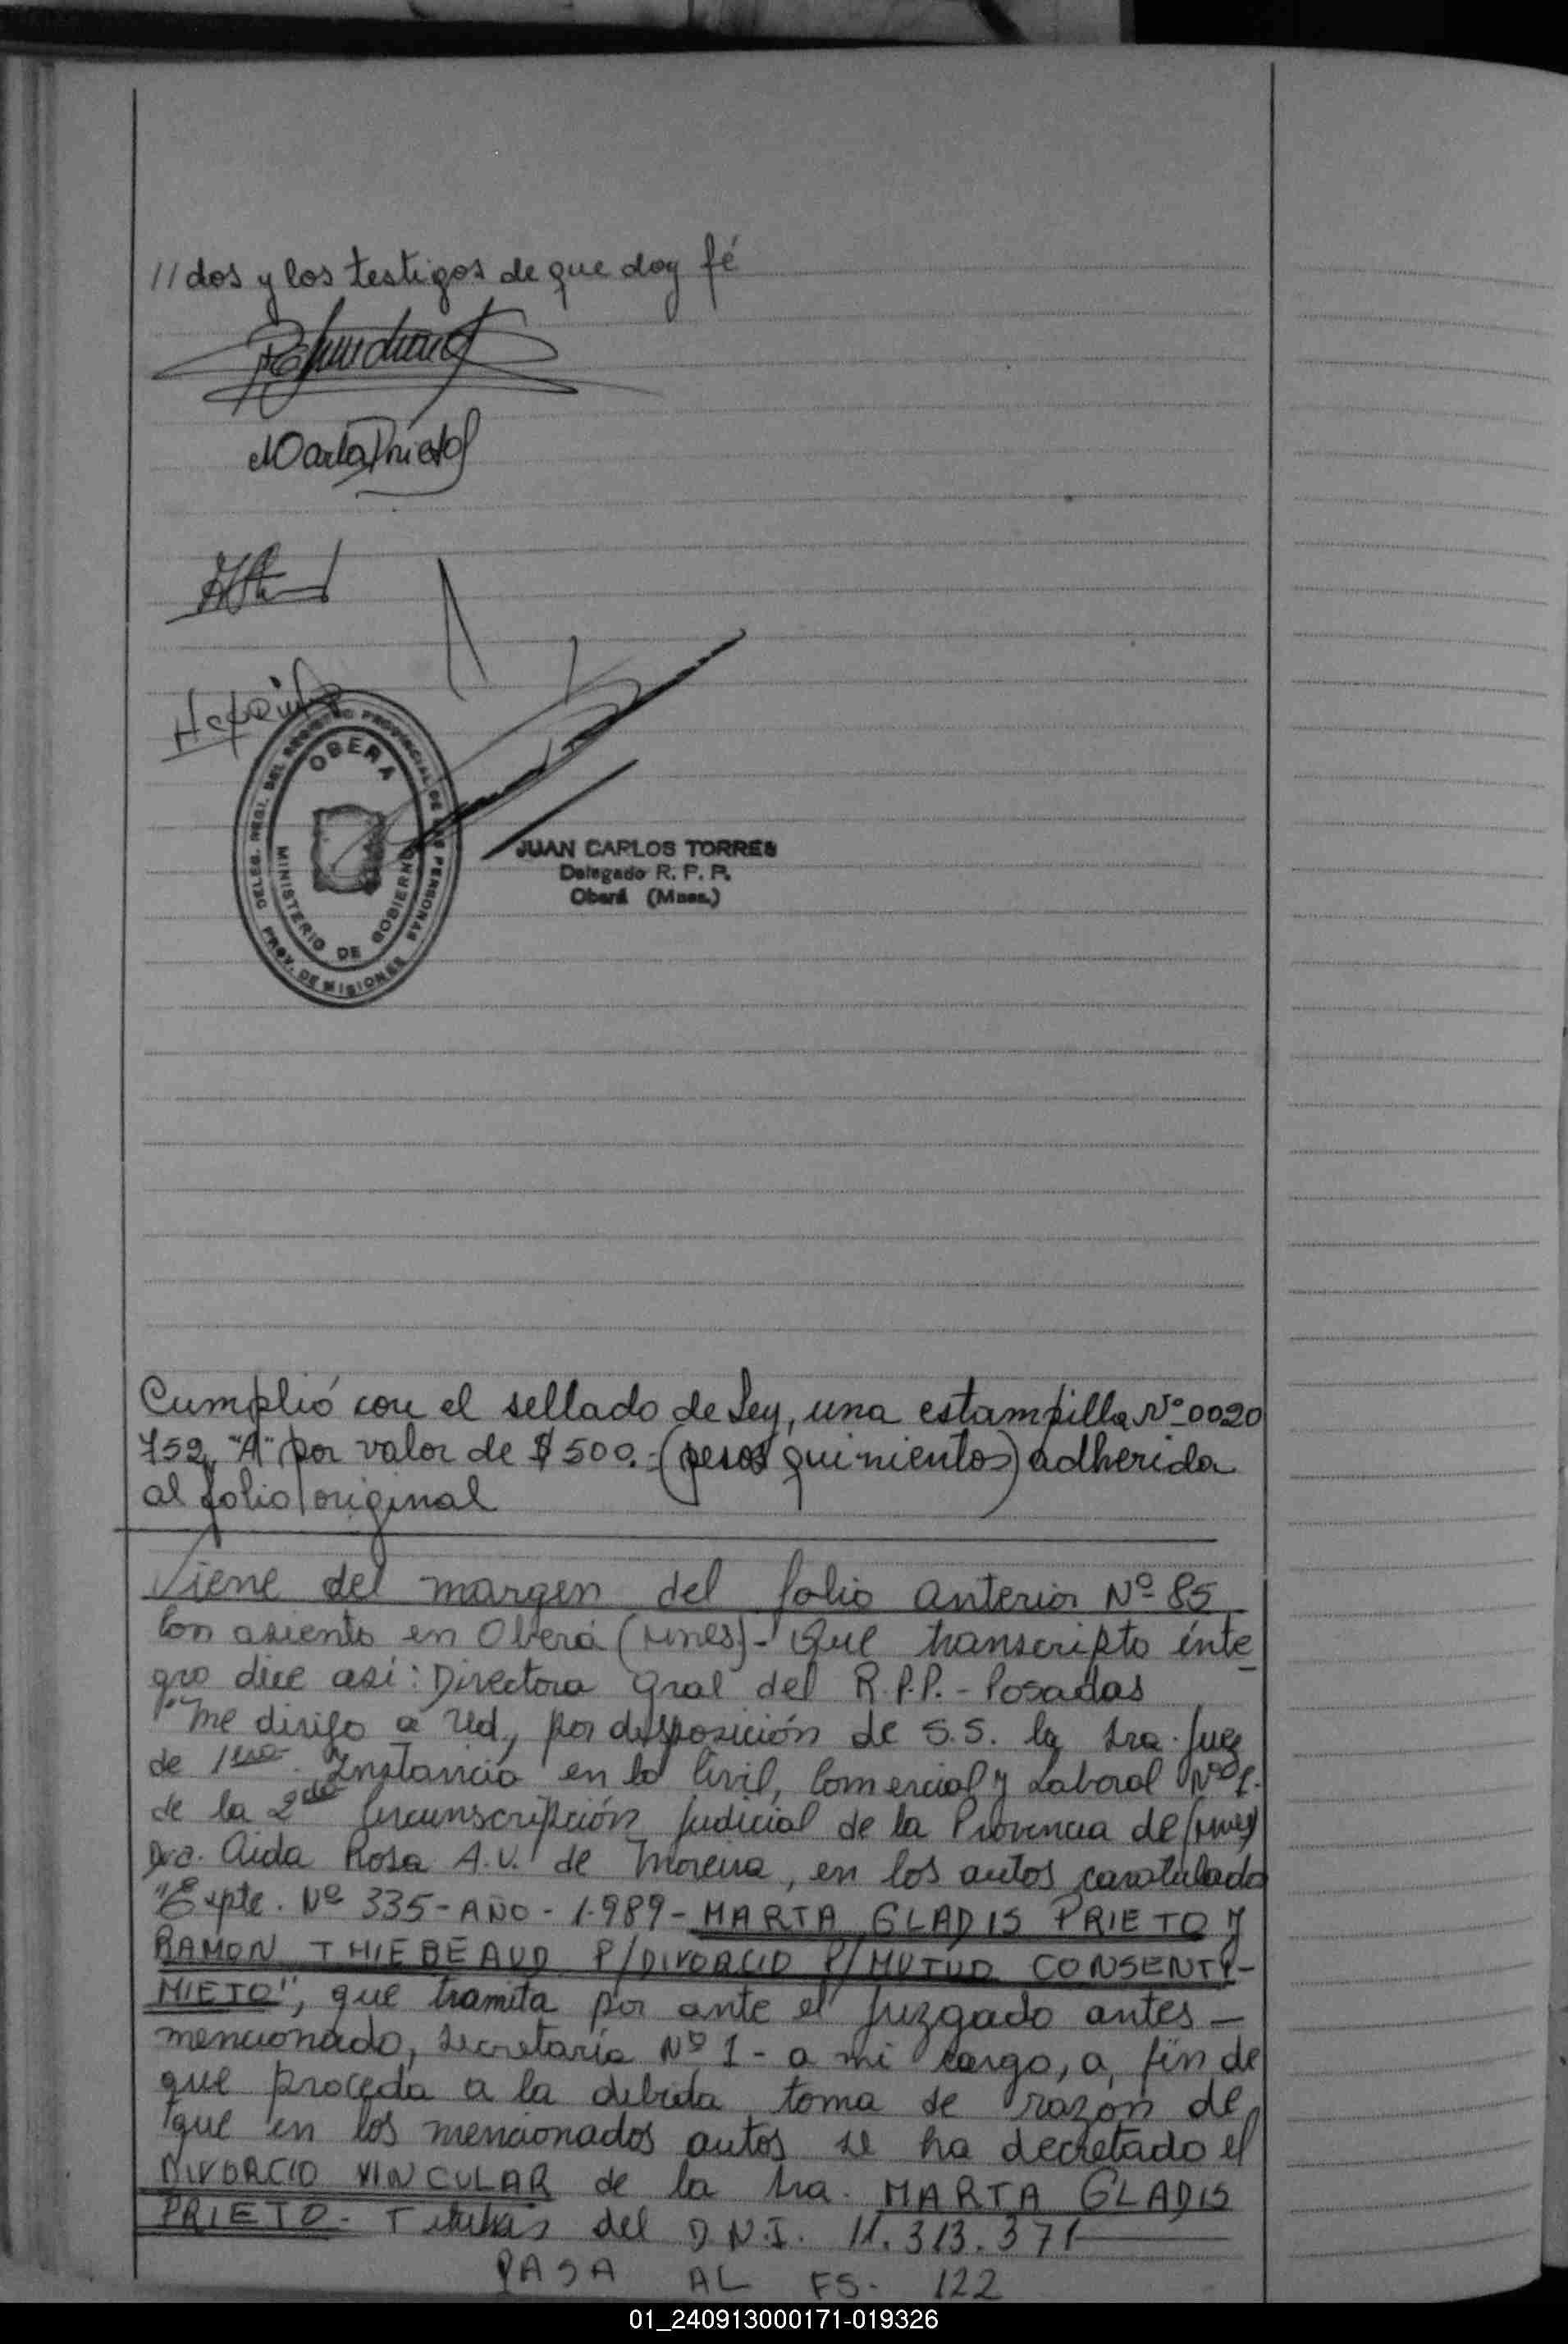 //dos y los testigos de que doy fé
Marta Prieto
DELEG. REGI. DEL REGISTRO PROVINCIAL DE LAS PERSONAS
OBERA
MINISTERIO DE GOBIERNO
PROV. DE MISIONES
JUAN CARLOS TORRES
Delegado R. P. P.
Oberá (Mnes.)
Cumplió con el sellado de Ley, una estampilla Nº 0020
752 "A" por valor de $ 500.- (pesos quinientos) adherida
al folio original
Viene del margen del folio anterior Nº 85
Con asiento en Oberá (Mnes)- Que transcripto ínte
gro dice así: Directora Gral del R.P.P. - Posadas
"Me dirijo a Ud., por disposición de S.S. la Sra. Juez
de 1era. Instancia en lo Civil, Comercial y Laboral Nº 1.
de la 2da Circunscripción Judicial de la Provincia de (Mnes)
Dra. Aida Rosa A.V. de Moreira, en los autos caratulado
"Expte. Nº 335-AÑO-1.989- MARTA GLADIS PRIETO Y
RAMON THIEBEAUD P/DIVORCIO P/MUTUO CONSENTI-
MIETO", que tramita por ante el Juzgado antes -
mencionado, Secretaría Nº 1 - a mi cargo, a fin de
que proceda a la debida toma de razón de
que en los mencionados autos se ha decretado el
DIVORCIO VINCULAR de la Sra. MARTA GLADIS
PRIETO- Titular del D.N.I. 11.313.371
PASA AL FS. 122
01_240913000171-019326